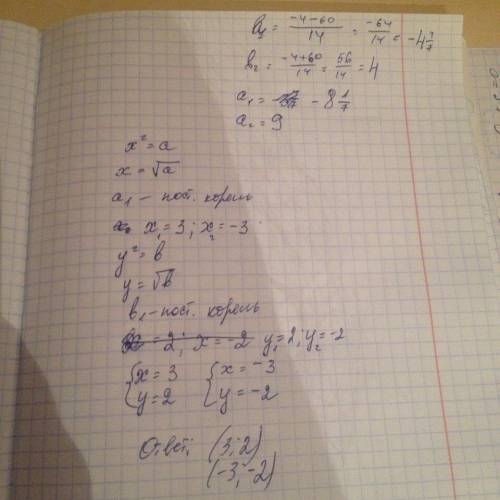 в₁ = (-4-60)/14 = -64/14 = -4 
в₂ = (-4+60)/14 = 56/14 = 4
a₁ = -8 1/7
a₂ = 9
x² = a
x = √a
a₁ - пост. корель
x₁ = 3; x₂ = -3
y² = в
y = √в
в₁ - пост. корель
x = 2; x = -2 y₁ = 2; y₂ = -2
{x = 3 {x = -3
{y = 2 {y = -2
Ответ: (3; 2)
(-3; -2)